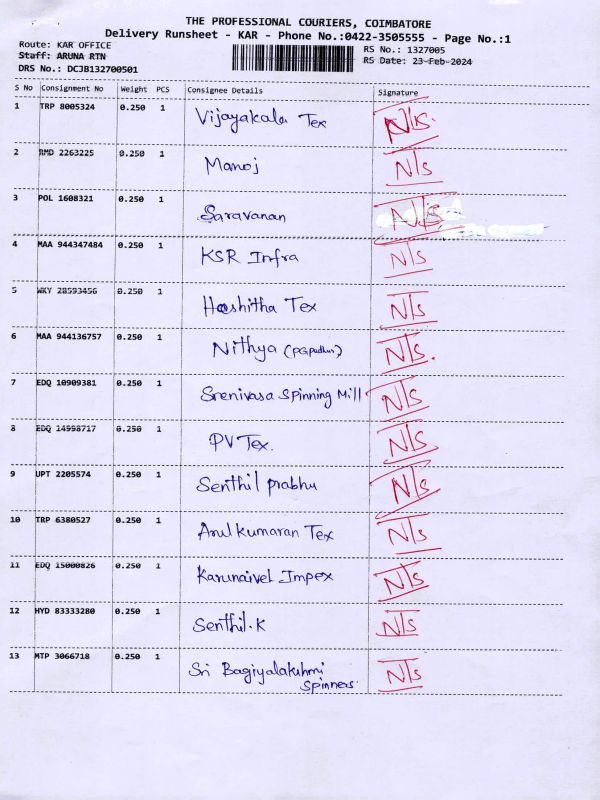 THE PROFESSIONAL COURIERS, COIMBATORE
Delivery Runsheet - KAR - Phone No.:0422-3505555 - Page No.:1
Route: KAR OFFICE RS No.: 1327005
Staff: ARUNA RTN RS Date: 23-Feb-2024
DRS No.: DCJB132700501
S No Consignment No Weight PCS Consignee Details Signature
1 TRP 8005324 0.250 1 Vijayakala Tex N/s.
2 RMD 2263225 0.250 1 Manoj N/s
3 POL 1608321 0.250 1 Saravanan N/s
4 MAA 944347484 0.250 1 KSR Infra N/s
5 WKY 28593456 0.250 1 Hashitha Tex N/s
6 MAA 944136757 0.250 1 Nithya (PGpudhur) N/s.
7 EDQ 10909381 0.250 1 Srenivasa Spinning Mill N/s
8 EDQ 14998717 0.250 1 PV Tex. N/s
9 UPT 2205574 0.250 1 Senthil prabhu N/s
10 TRP 6380527 0.250 1 Arulkumaran Tex N/s
11 EDQ 15000826 0.250 1 Karunaivel Impex N/s
12 HYD 83333280 0.250 1 Senthil.K N/s
13 MTP 3066718 0.250 1 Sri Bagiyalakshmi N/s
Spinners